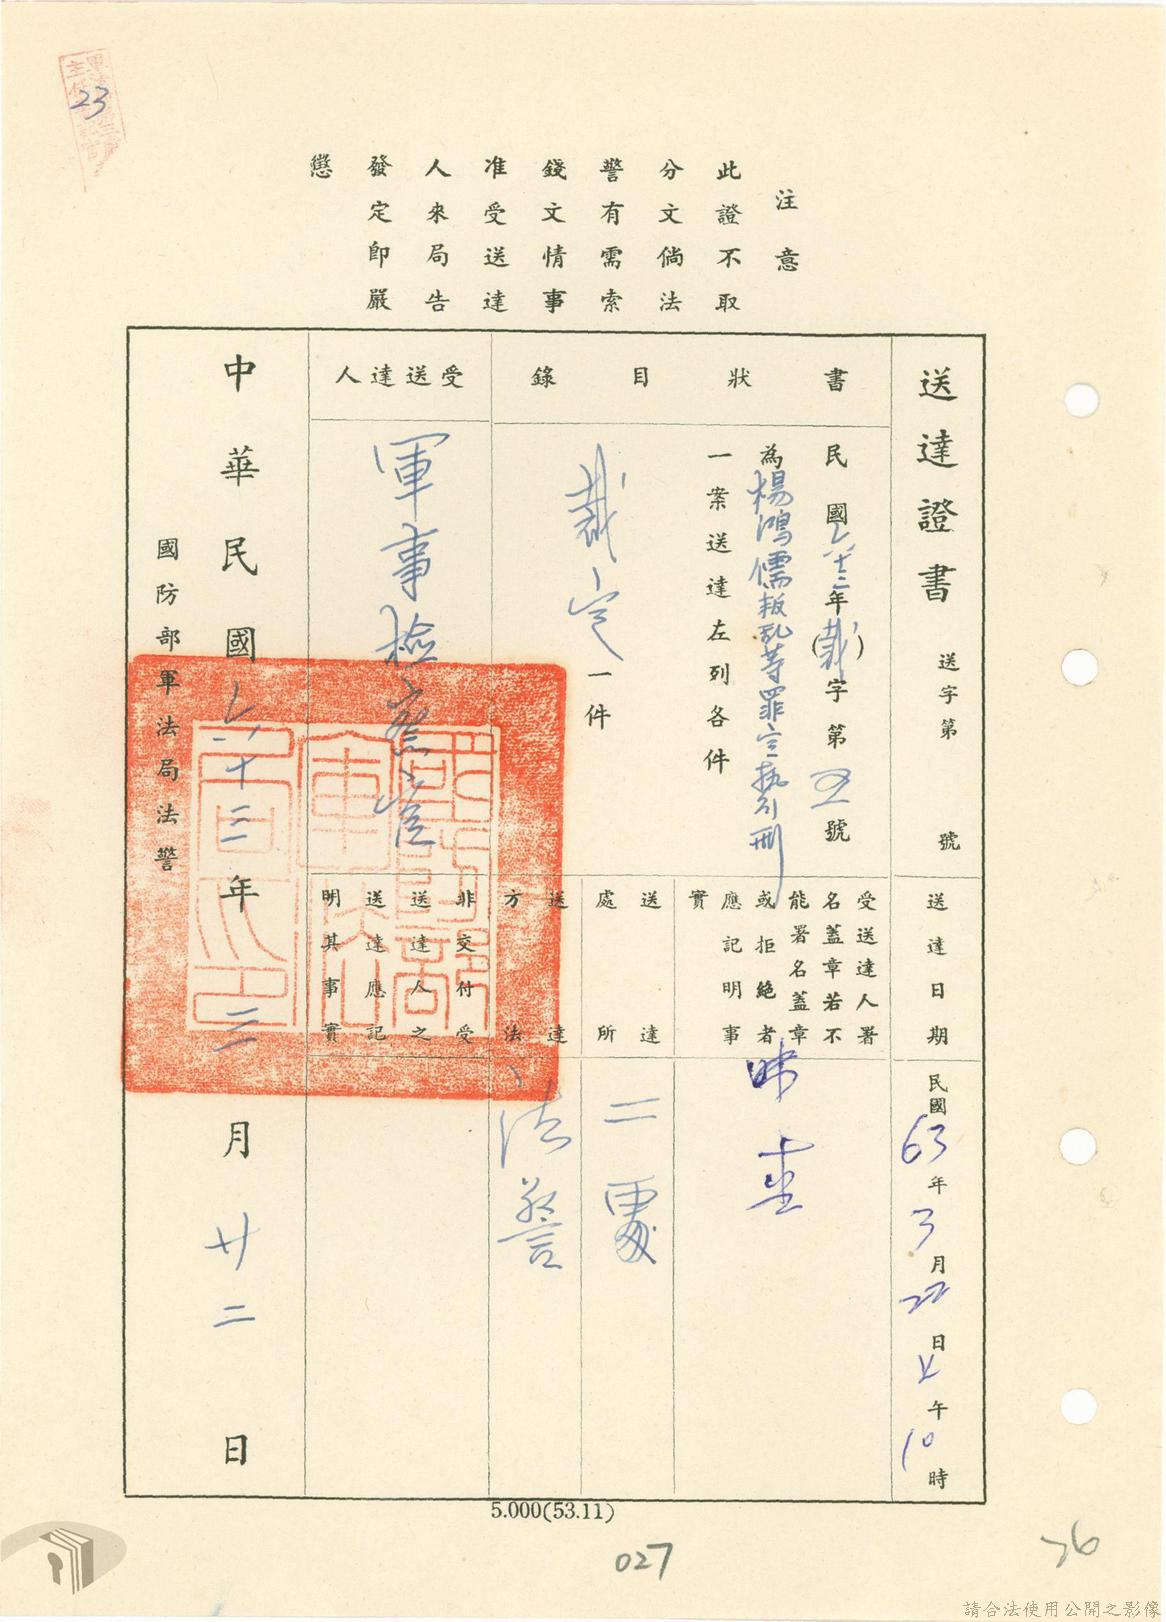 23
注意
此證不取
分文倘法
警有需索
錢文情事
准受送達
人來局告
發定即嚴
懲
送達證書 送字第 號
書狀目錄
民國六十三年(裁)字第五號
為楊鴻儒叛乱等罪定執行刑
一案送達左列各件
裁定一件
受送達人
軍事檢察官
送達日期
民國63年3月22日上午10時
受送達人署
名蓋章若不
能署名蓋章
或拒絕者
應記明事
實
送達處所
二處
送達方法
法警
非交付受
送達人之
送達應記
明其事實
中華民國六十三年三月廿二日
國防部軍法局法警
5.000(53.11)
027
76
請合法使用公開之影像